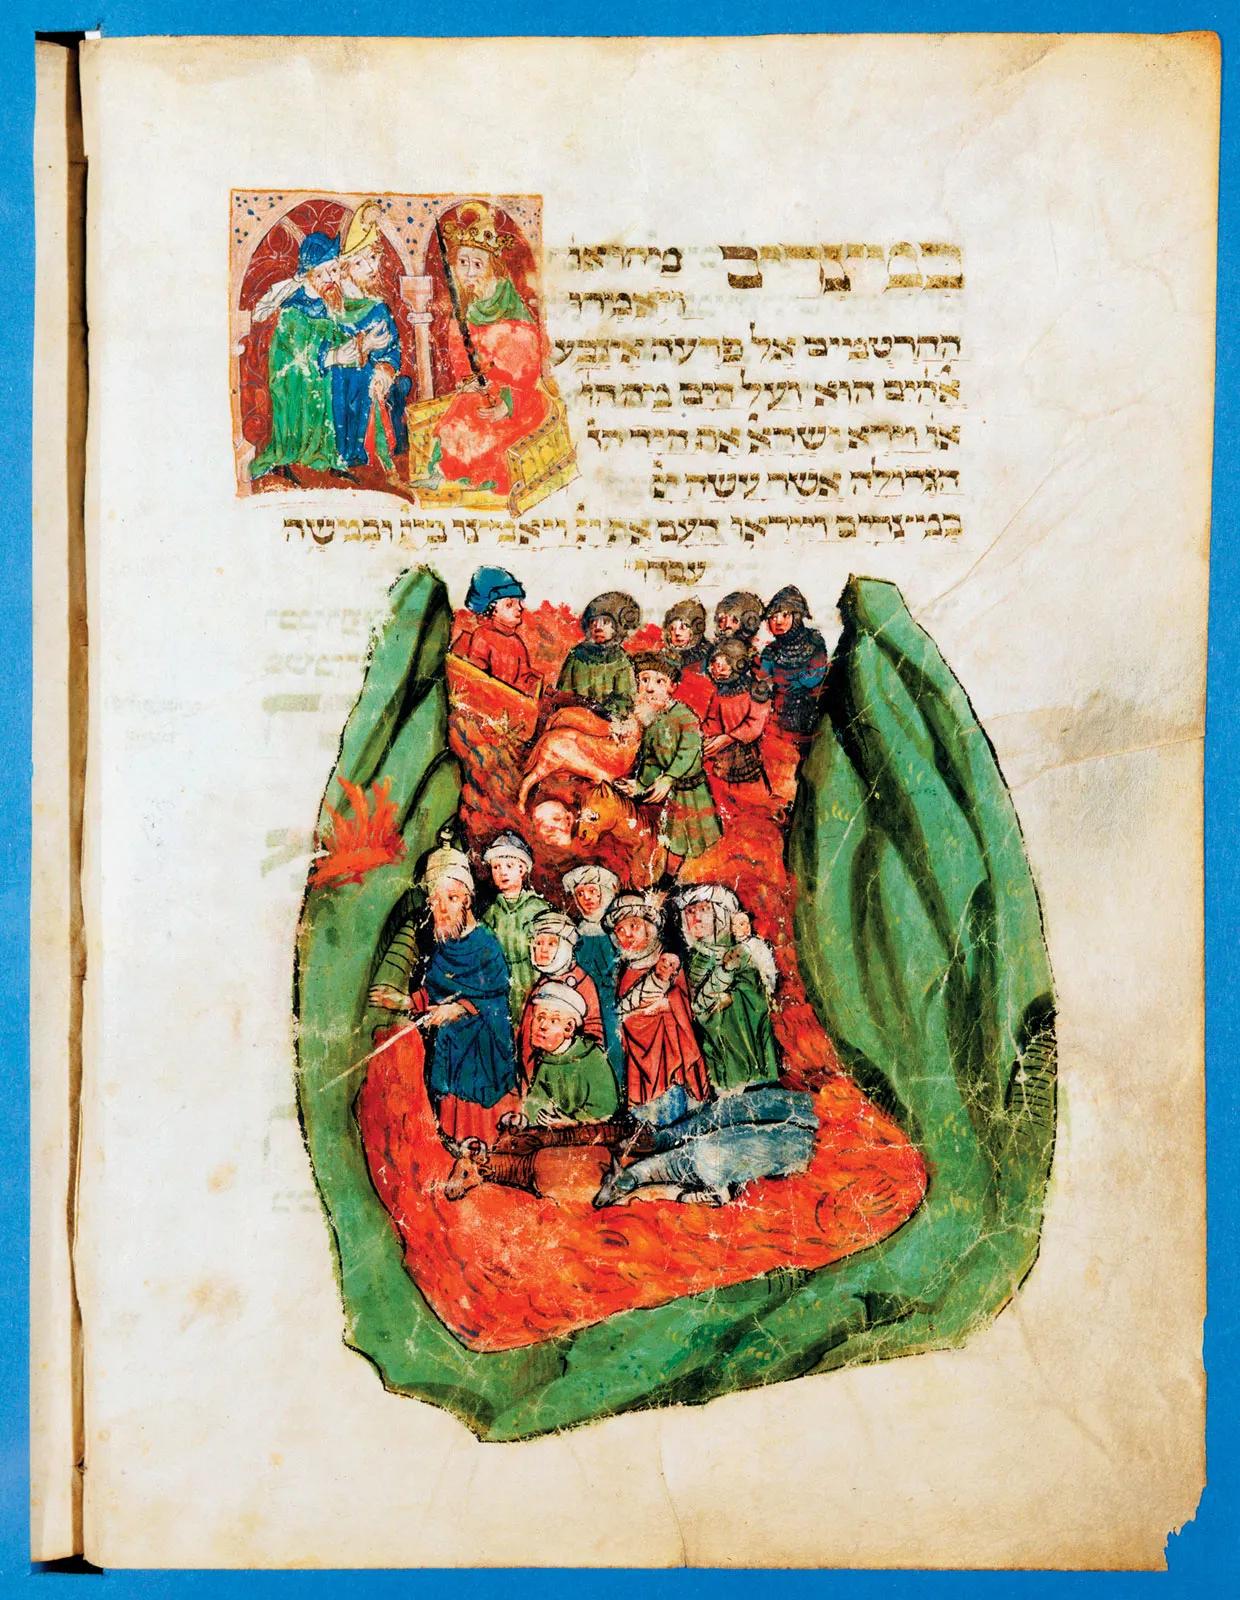 במצרים או
ויאמרו
החרטמים אל פרעה אצבע
אלהים הוא ועל הים
או וירא ישרא את היד
הגדולה אשר עשה
במצרים וייראו העם את ויאמינו ובמשה
עבדו